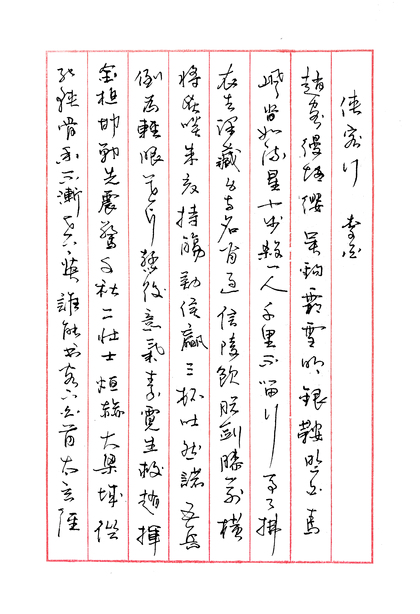 侠客行 李白
趙客縵胡纓吳鉤霜雪明銀鞍照白馬
飒沓如流星十步殺一人千里不留行事了拂
衣去深藏身与名闲過信陵飲脱劍膝前横
將炙啖朱亥持觴勸侯嬴三杯吐然諾五岳
倒为輕眼花耳熱後意氣素霓生救趙揮
金槌邯鄲先震驚千秋二壮士烜赫大梁城縱
死俠骨香不慚世上英誰能书閣下白首太玄經